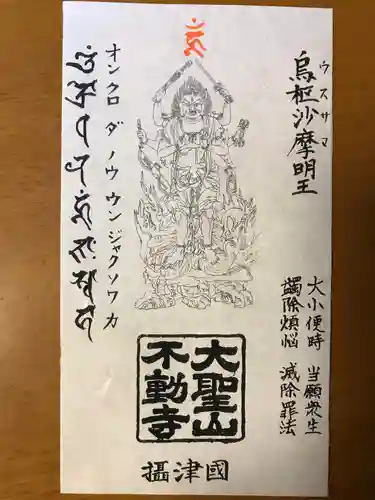 烏枢沙摩明王
ウスサマ
大小便時 当願衆生
蠲除煩悩 滅除罪法
オンクロ ダ ノウ ウンジャクソワ カ
大聖山
不動寺
攝津國